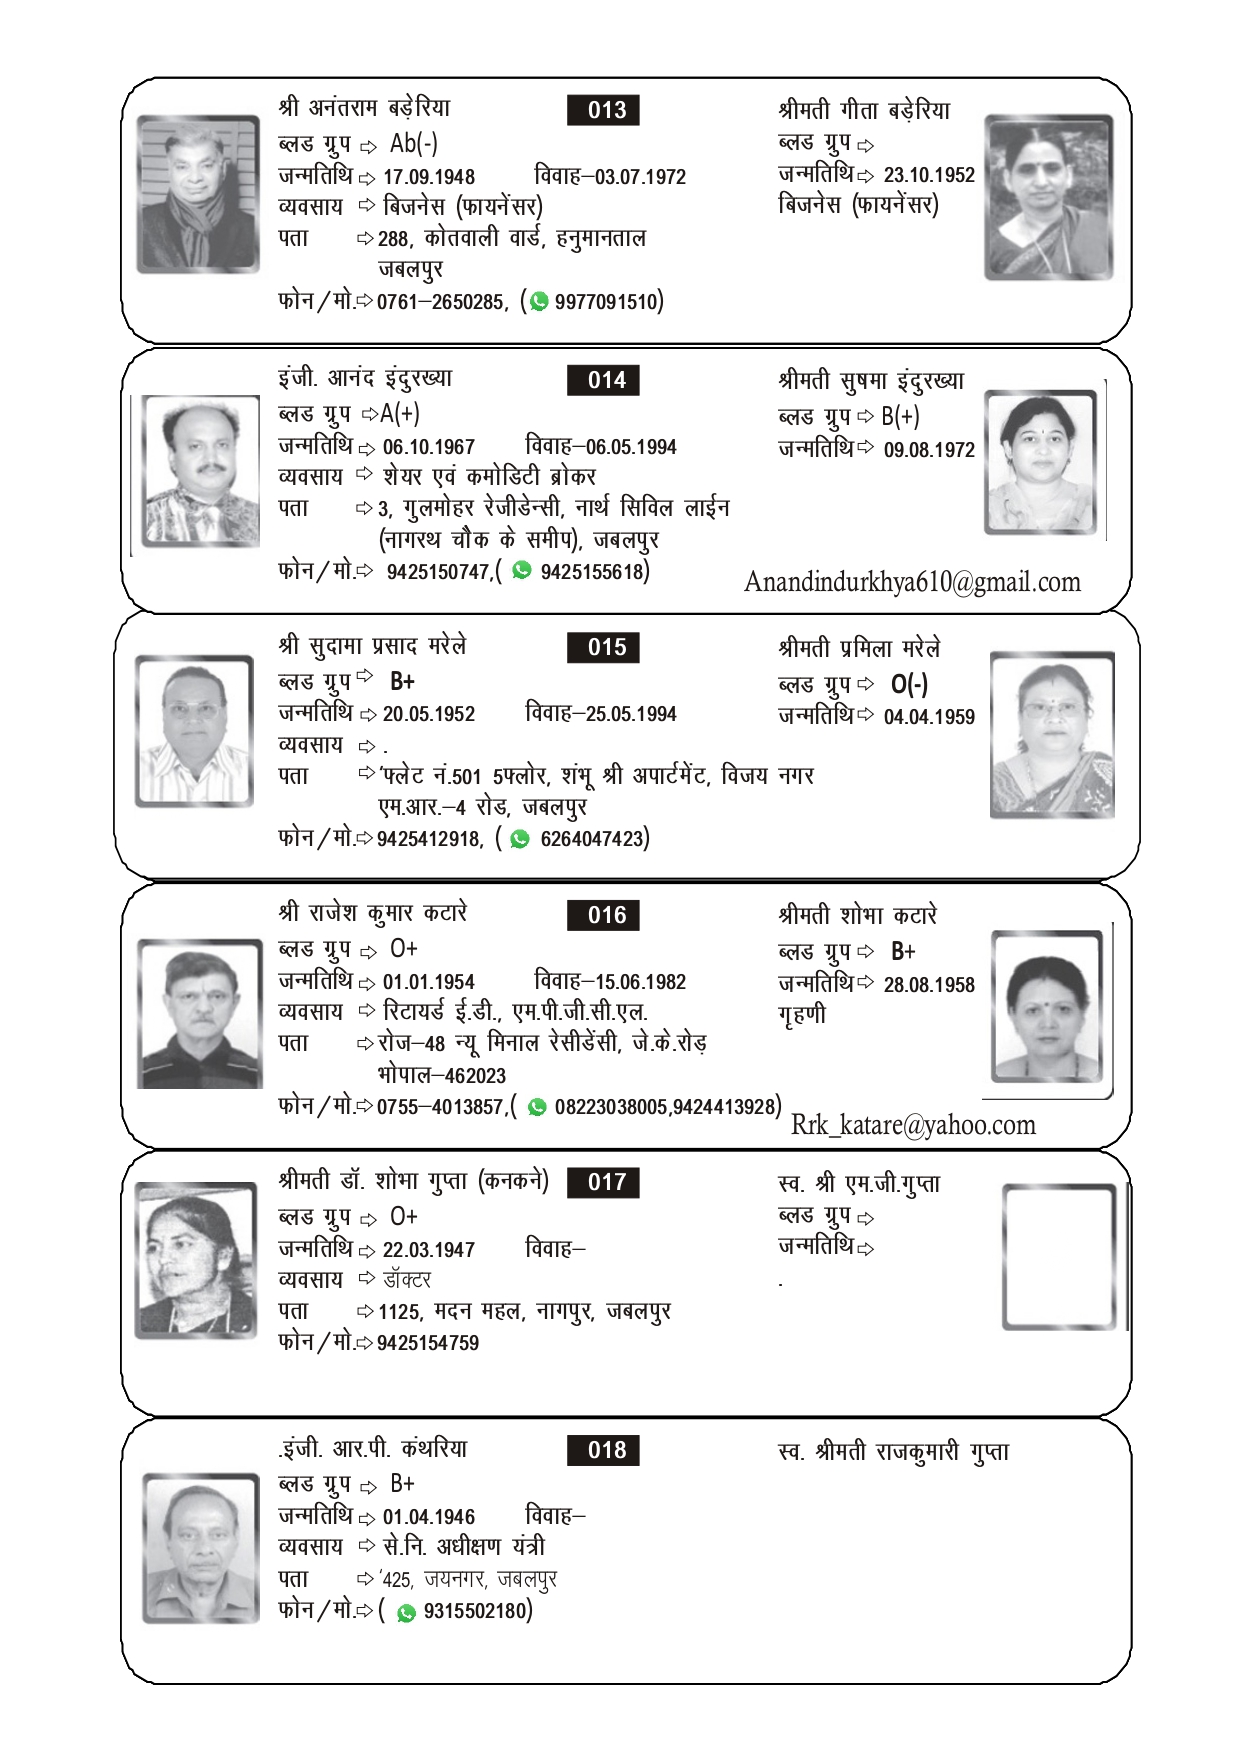 श्री अनंतराम बड़ेरिया 013 श्रीमती गीता बड़ेरिया
ब्लड ग्रुप ⇨ Ab(-) ब्लड ग्रुप ⇨
जन्मतिथि ⇨ 17.09.1948 विवाह–03.07.1972 जन्मतिथि⇨ 23.10.1952
व्यवसाय ⇨ बिजनेस (फायनेंसर) बिजनेस (फायनेंसर)
पता ⇨ 288, कोतवाली वार्ड, हनुमानताल
जबलपुर
फोन/मो.⇨ 0761–2650285, ( 9977091510)
इंजी. आनंद इंदुरख्या 014 श्रीमती सुषमा इंदुरख्या
ब्लड ग्रुप ⇨A(+) ब्लड ग्रुप ⇨ B(+)
जन्मतिथि ⇨ 06.10.1967 विवाह–06.05.1994 जन्मतिथि⇨ 09.08.1972
व्यवसाय ⇨ शेयर एवं कमोडिटी ब्रोकर
पता ⇨ 3, गुलमोहर रेजीडेन्सी, नार्थ सिविल लाईन
(नागरथ चौक के समीप), जबलपुर
फोन/मो.⇨ 9425150747,( 9425155618)
Anandindurkhya610@gmail.com
श्री सुदामा प्रसाद मरेले 015 श्रीमती प्रमिला मरेले
ब्लड ग्रुप ⇨ B+ ब्लड ग्रुप ⇨ O(-)
जन्मतिथि ⇨ 20.05.1952 विवाह–25.05.1994 जन्मतिथि⇨ 04.04.1959
व्यवसाय ⇨ .
पता ⇨ 'फ्लेट नं.501 5फ्लोर, शंभू श्री अपार्टमेंट, विजय नगर
एम.आर.–4 रोड, जबलपुर
फोन/मो.⇨ 9425412918, ( 6264047423)
श्री राजेश कुमार कटारे 016 श्रीमती शोभा कटारे
ब्लड ग्रुप ⇨ O+ ब्लड ग्रुप ⇨ B+
जन्मतिथि ⇨ 01.01.1954 विवाह–15.06.1982 जन्मतिथि⇨ 28.08.1958
व्यवसाय ⇨ रिटायर्ड ई.डी., एम.पी.जी.सी.एल. गृहणी
पता ⇨ रोज–48 न्यू मिनाल रेसीडेंसी, जे.के.रोड़
भोपाल–462023
फोन/मो.⇨ 0755–4013857,( 08223038005,9424413928)
Rrk_katare@yahoo.com
श्रीमती डॉ. शोभा गुप्ता (कनकने) 017 स्व. श्री एम.जी.गुप्ता
ब्लड ग्रुप ⇨ O+ ब्लड ग्रुप ⇨
जन्मतिथि ⇨ 22.03.1947 विवाह– जन्मतिथि⇨
व्यवसाय ⇨ डॉक्टर .
पता ⇨ 1125, मदन महल, नागपुर, जबलपुर
फोन/मो.⇨ 9425154759
.इंजी. आर.पी. कंथरिया 018 स्व. श्रीमती राजकुमारी गुप्ता
ब्लड ग्रुप ⇨ B+
जन्मतिथि ⇨ 01.04.1946 विवाह–
व्यवसाय ⇨ से.नि. अधीक्षण यंत्री
पता ⇨ '425, जयनगर, जबलपुर
फोन/मो.⇨ ( 9315502180)